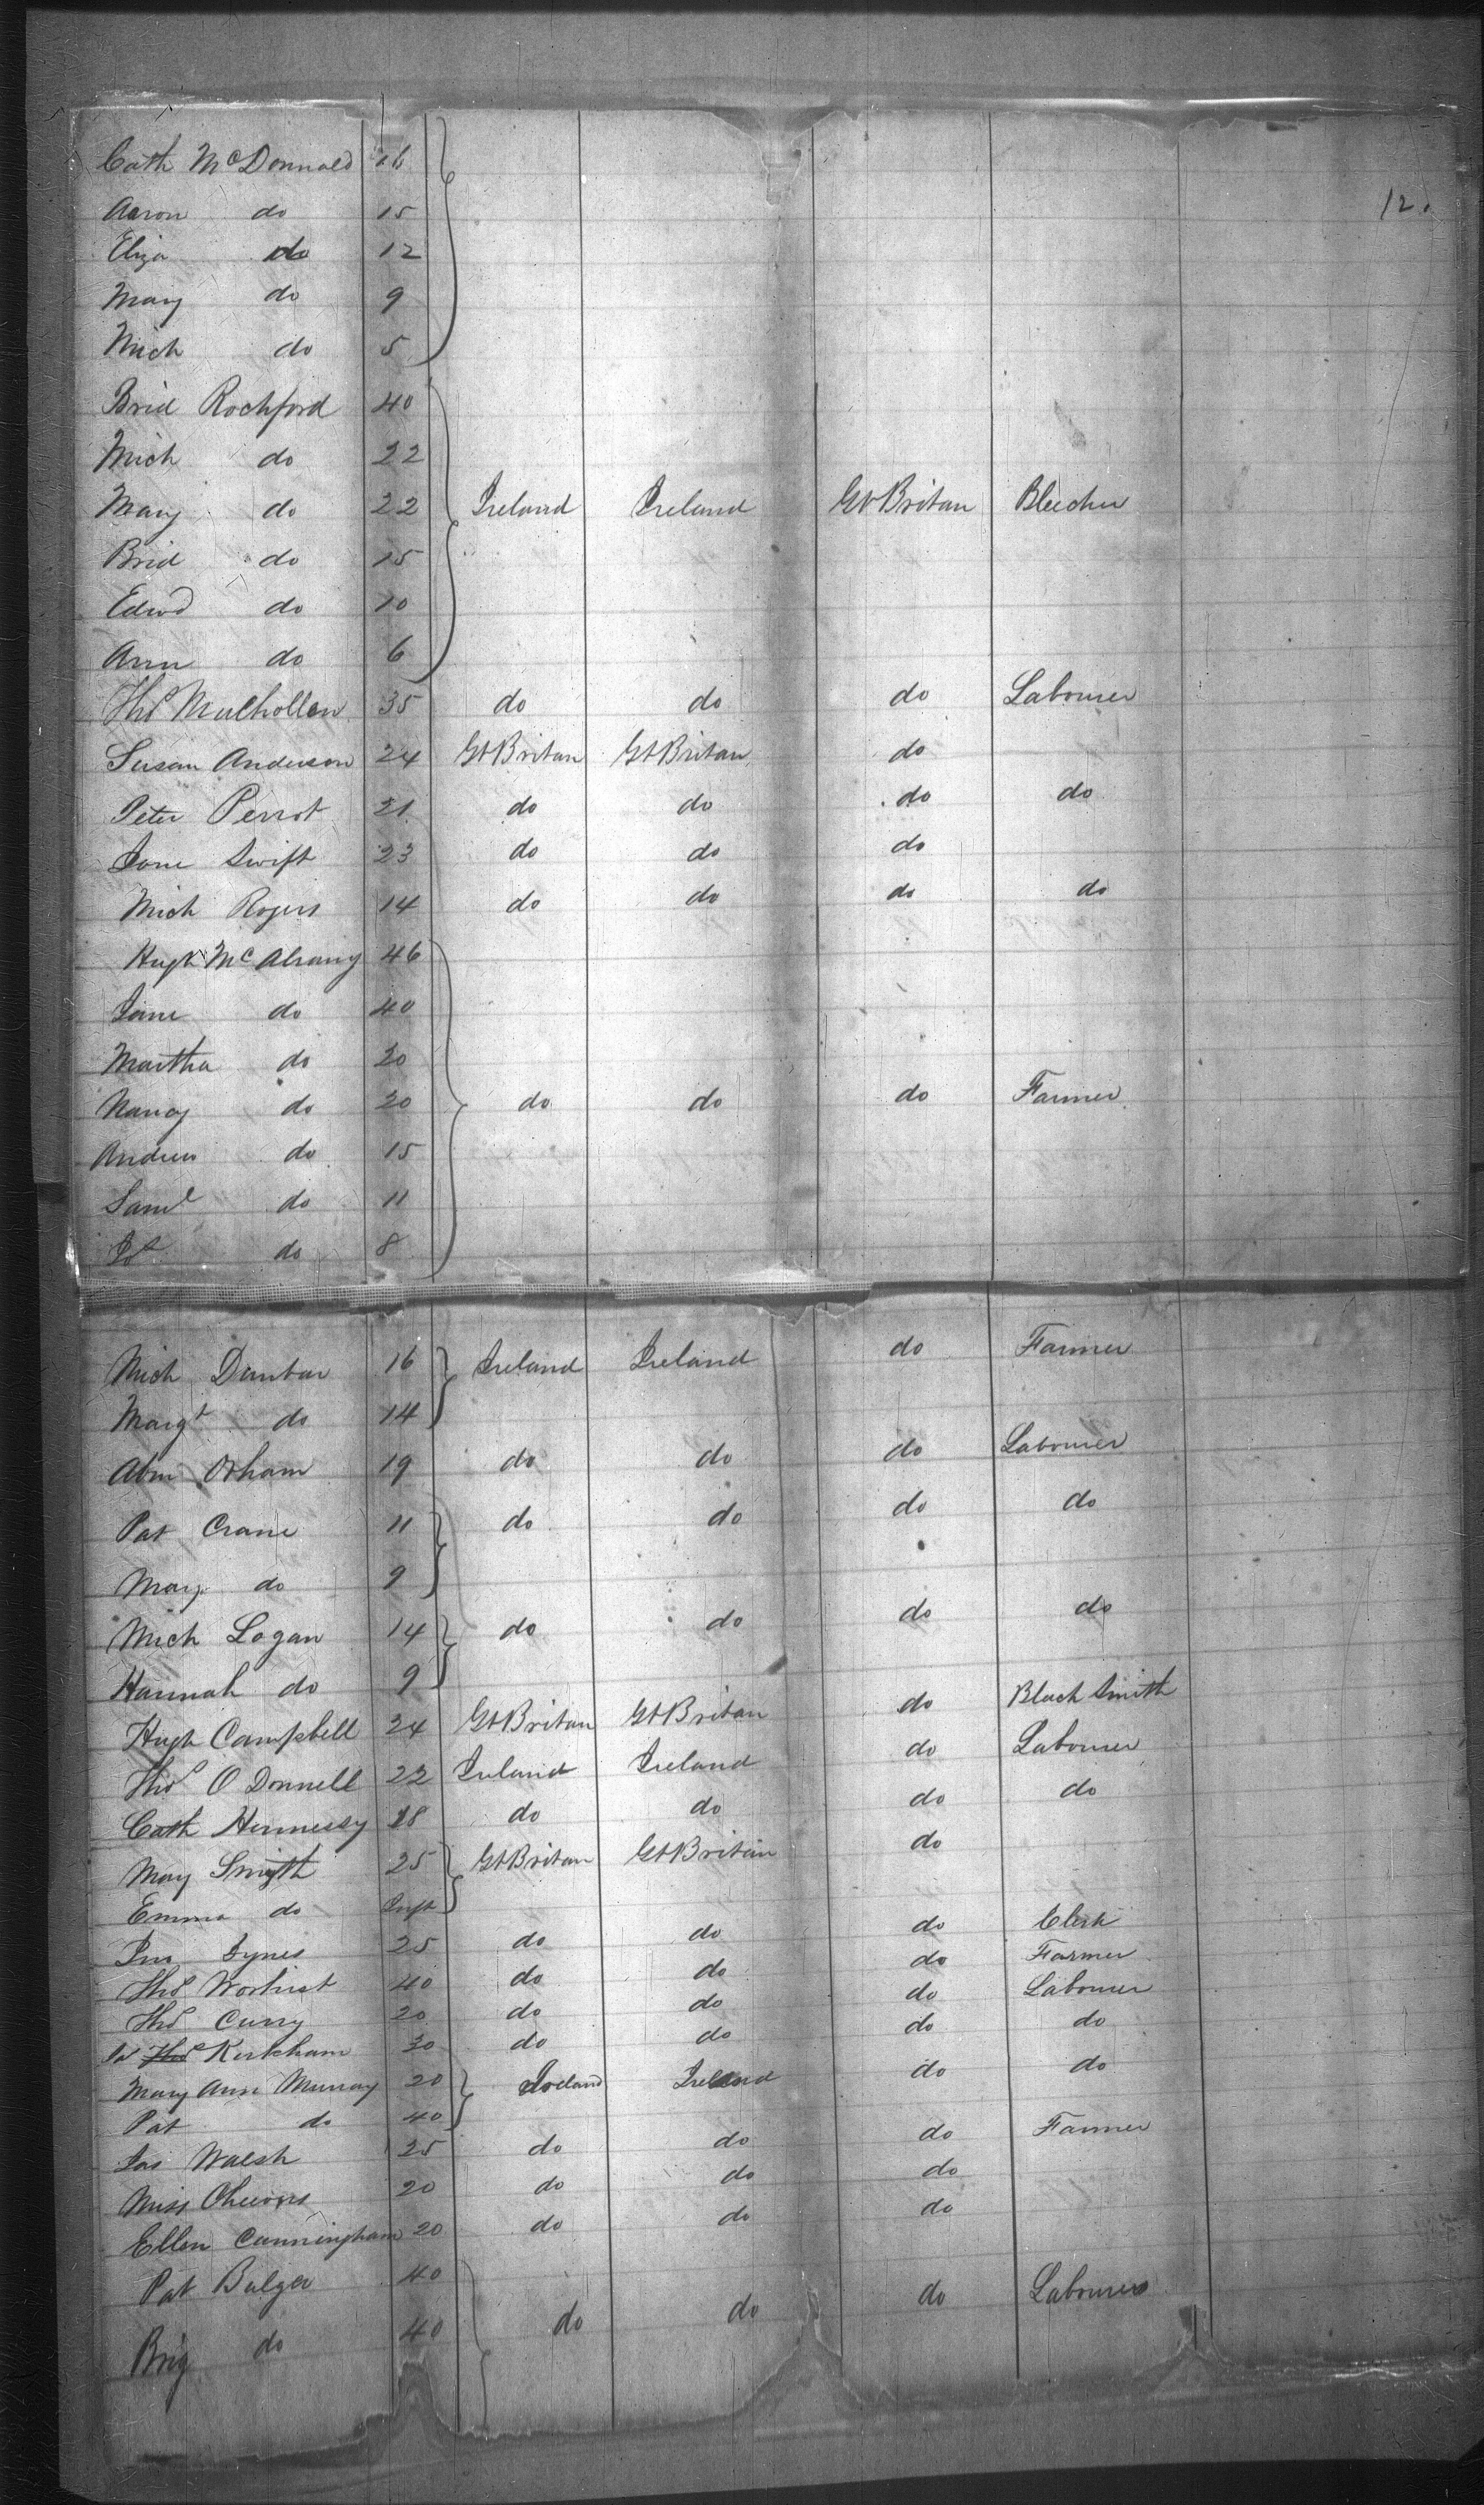 Cath McDonnald 16
12.
Aaron do 15
Eliza do 12
Mary do 9
Mich do 5
Brid Rochford 40
Mich do 22
Mary do 22 Ireland Ireland Gt Britan Bleecher
Brid do 15
Edwd do 10
Ann do 6
Thos Mulhollen 35 do do do Labourer
Susan Anderson 24 Gt Britan Gt Britan do
Peter Perrot 21 do do do do
Jane Swift 23 do do do
Mich Rogers 14 do do do do
Hugh McAlrany 46
Jane do 40
Martha do 20
Nancy do 20 do do do Farmer
Andrew do 15
Saml do 11
do 8
Mich Dunbar 16 Ireland Ireland do Farmer
Margt do 14
Abm Orham 19 do do do Labourer
Pat Crane 11 do do do do
Mary do 9
Mich Logan 14 do do do do
Hannah do 9
Hugh Campbell 24 Gt Britan Gt Britan do Black Smith
Thos O Donnell 22 Ireland Ireland do Labourer
Cath Hennessy 18 do do do do
May Smyth 25 Gt Britan Gt Britan do
Emma do Inft
Jno Synes 25 do do do Clerk
Thos 40 do do do Farmer
Thos Curry 20 do do do Labourer
Kirkham 20 do do do do
Mary Ann Murray 20 Ireland Ireland do do
Pat do 40
Jas Walsh 25 do do do Farmer
Miss 20 do do do
Ellen Cunningham 20 do do do
Pat Bulger 40
Brig do 40 do do do Labourers